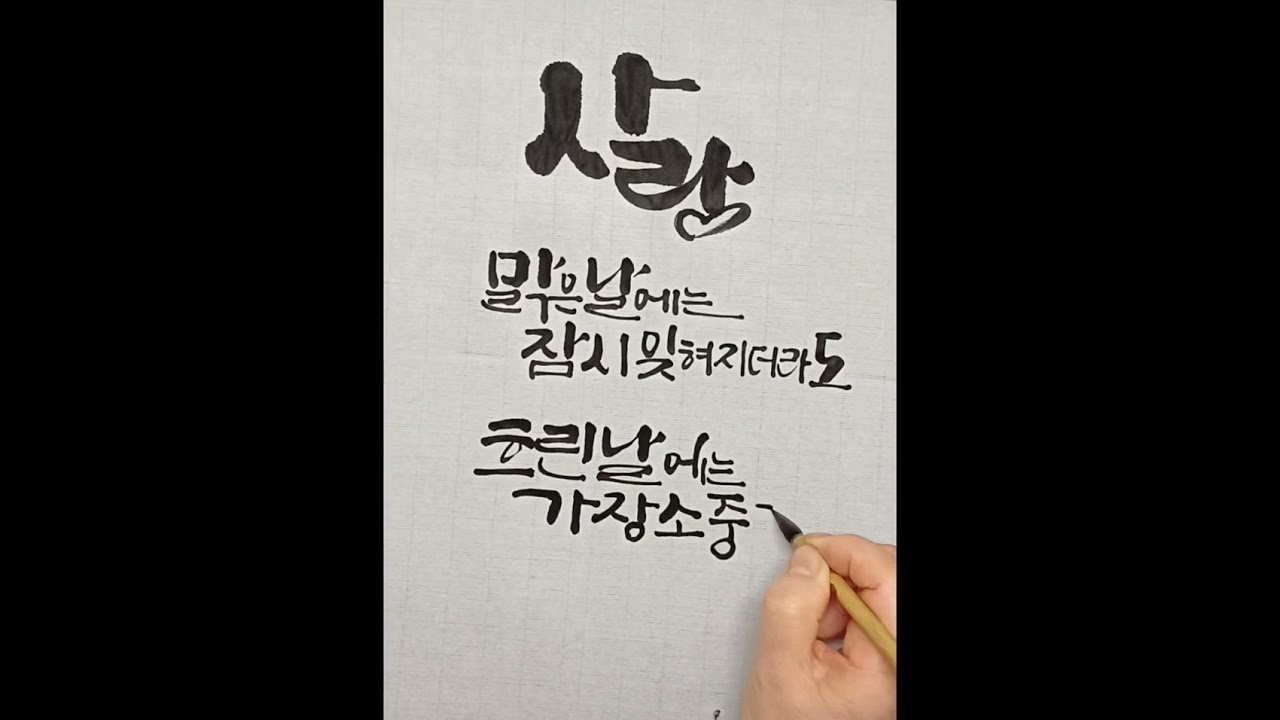 사랑
맑은날에는
잠시잊혀지더라도
흐린날에는
가장소중